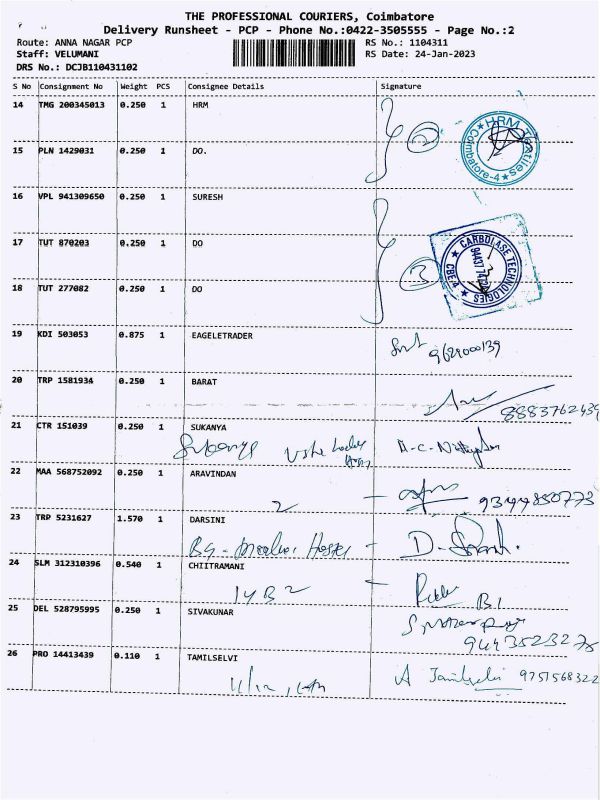 THE PROFESSIONAL COURIERS, Coimbatore
Delivery Runsheet - PCP - Phone No.:0422-3505555 - Page No.:2
Route: ANNA NAGAR PCP RS No.: 1104311
Staff: VELUMANI RS Date: 24-Jan-2023
DRS No.: DCJB110431102
S No Consignment No Weight PCS Consignee Details Signature
14 TMG 200345013 0.250 1 HRM
2 HRM Textiles Coimbatore-4
15 PLN 1429031 0.250 1 DO.
16 VPL 941309650 0.250 1 SURESH
17 TUT 870203 0.250 1 DO
3 CARBOLASE TECHNOLOGIES CBE
18 TUT 277082 0.250 1 DO
19 KDI 503053 0.875 1 EAGELETRADER
20 TRP 1581934 0.250 1 BARAT
8883762439
21 CTR 151039 0.250 1 SUKANYA
Sukanya
22 MAA 568752092 0.250 1 ARAVINDAN
2 - 9344850773
23 TRP 5231627 1.570 1 DARSINI
24 SLM 312310396 0.540 1 CHIITRAMANI
B1
25 DEL 528795995 0.250 1 SIVAKUNAR
26 PRO 14413439 0.110 1 TAMILSELVI
A Tamilselvi 9751568322